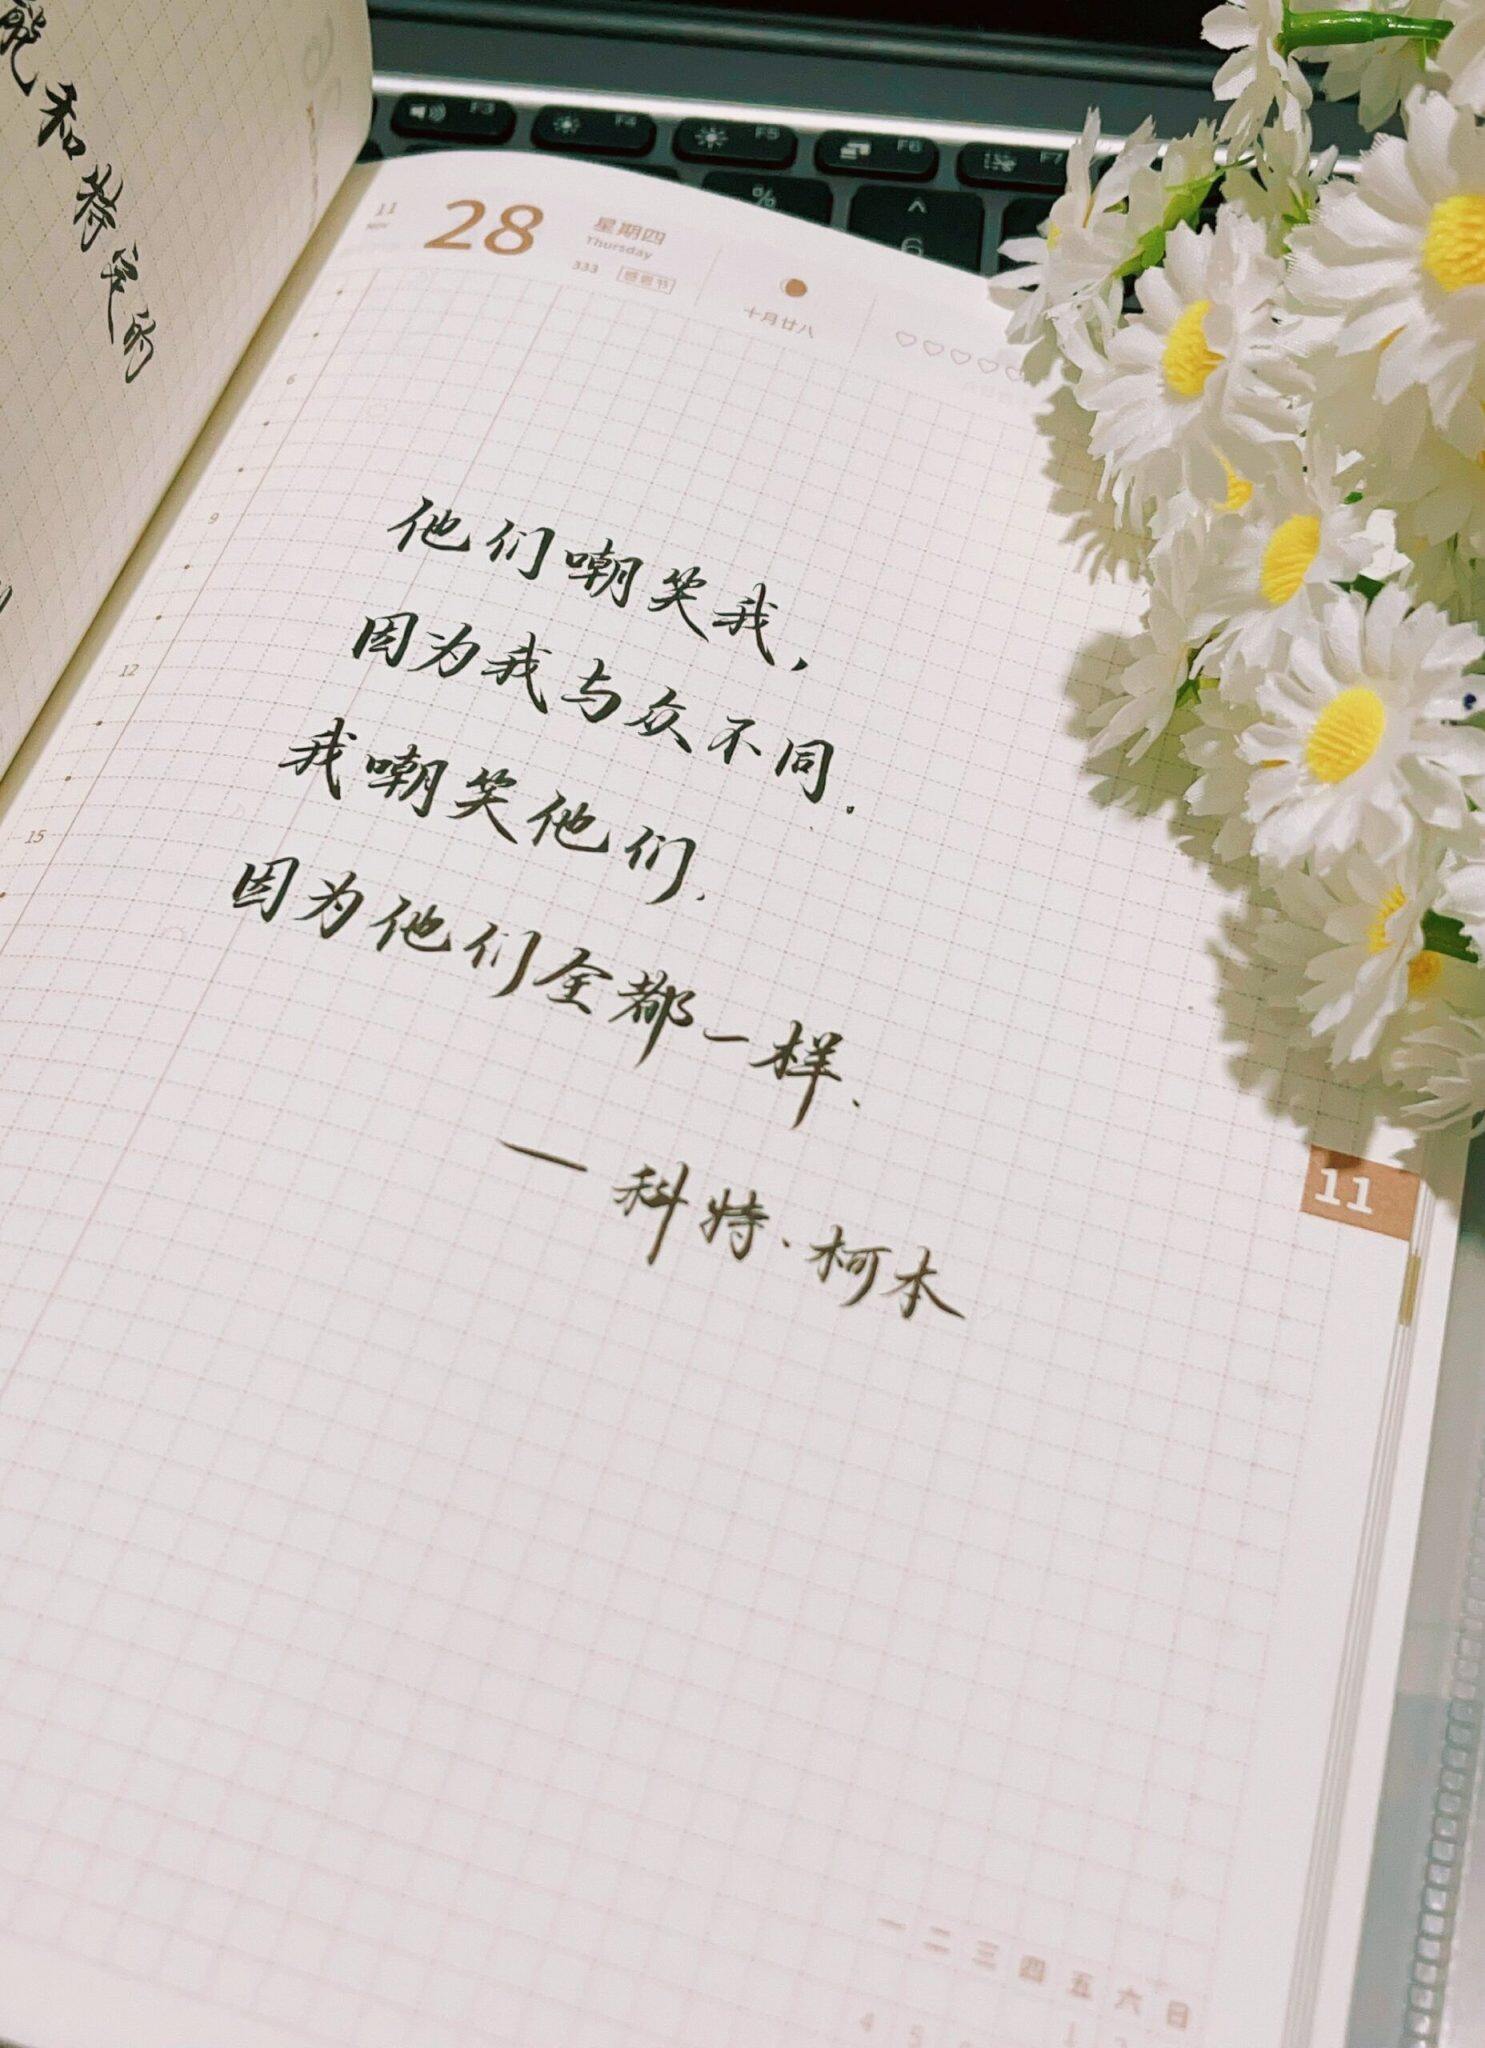 能和特定的
F3 F4 F5 F6 F7
% ^
6
11
NOV
28
星期四
Thursday
333 感恩节
十月廿八
6
9
12
15
他们嘲笑我，
因为我与众不同.
我嘲笑他们.
因为他们全都一样.
— 科特·柯本
11
一 二 三 四 五 六 日
4 5
1